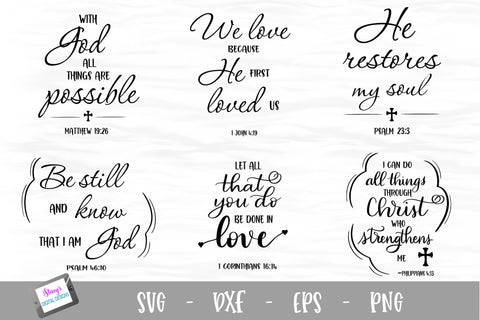 WITH
God
ALL
THINGS ARE
possible
MATTHEW 19:26
We love
BECAUSE
He FIRST
loved US
1 JOHN 4:19
He
restores
my soul
PSALM 23:3
Be still
AND know
THAT I AM God
PSALM 46:10
LET ALL
that
you do
BE DONE IN
love
1 CORINTHIANS 16:14
I CAN DO
all things
THROUGH
Christ
WHO
strengthens
ME
~PHILIPPIANS 4:13
Stacy's
DIGITAL DESIGNS
SVG - DXF - EPS - PNG